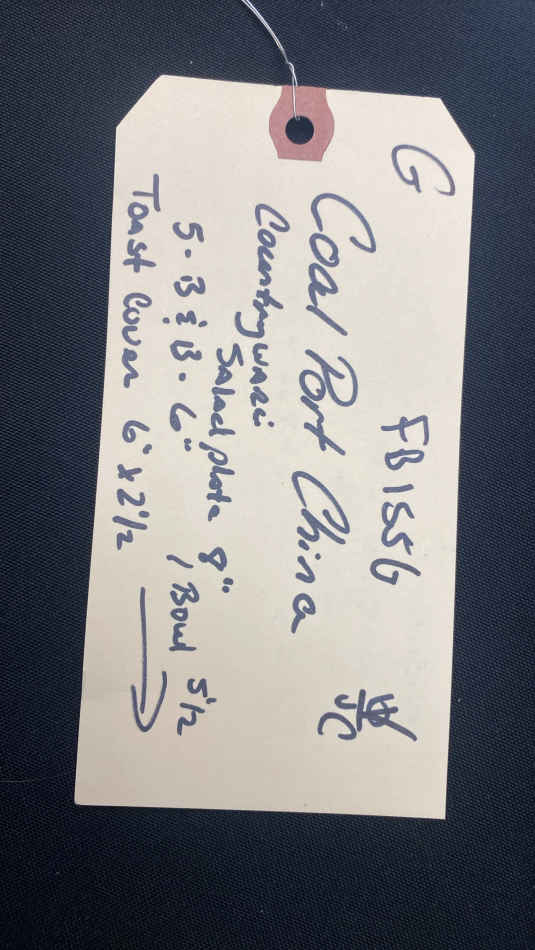 G FB1556
JC
Coal Port China
Countryware
Salad plate 8"
5 - B & B - 6" 1 Bowl 5 1/2
Toast Cover 6" x 2 1/2